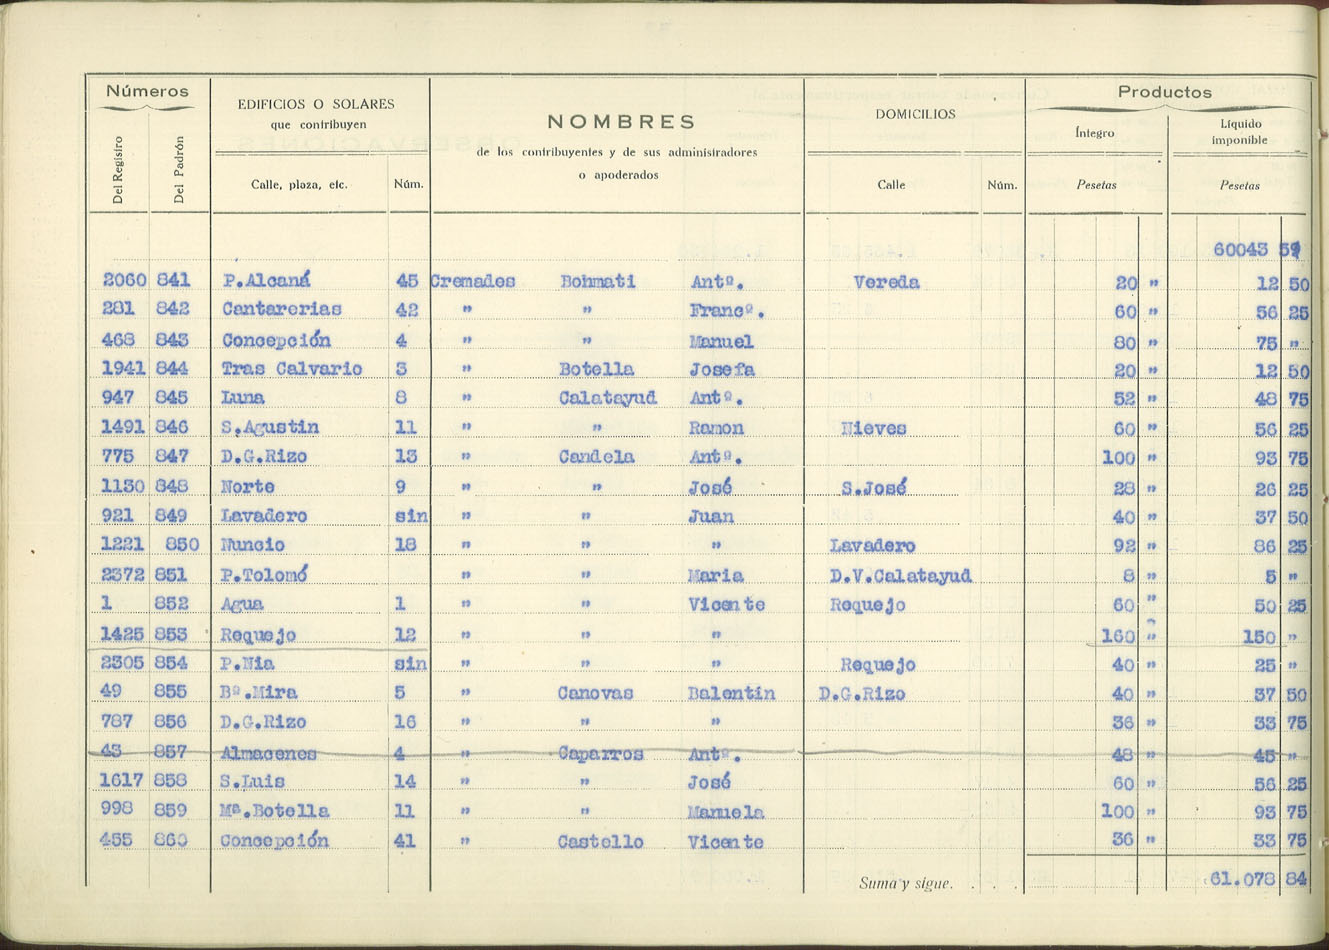 Números
EDIFICIOS O SOLARES
que contribuyen
NOMBRES
de los contribuyentes y de sus administradores
o apoderados
DOMICILIOS
Productos
Íntegro
Líquido
imponible
Del Registro
Del Padrón
Calle, plaza, etc.
Núm.
Calle
Núm.
Pesetas
Pesetas
60043
2060 841 P.Alcaná 45 Cremades Bohmati Antº. Vereda 20 " 12 50
281 842 Cantarerias 42 " " Francº. 60 " 56 25
468 843 Concepción 4 " " Manuel 80 " 75 "
1941 844 Tras Calvario 3 " Botella Josefa 20 " 12 50
947 845 Luna 8 " Calatayud Antº. 52 " 48 75
1491 846 S.Agustin 11 " " Ramon Nieves 60 " 56 25
775 847 D.G.Rizo 13 " Candela Antº. 100 " 93 75
1130 848 Norte 9 " " José S.José 28 " 26 25
921 849 Lavadero sin " " Juan 40 " 37 50
1221 850 Nuncio 18 " " " Lavadero 92 " 86 25
2372 851 P.Tolomó " " Maria D.V.Calatayud 8 " 5 "
1 852 Agua 1 " " Vicente Requejo 60 " 50 25
1425 853 Requejo 12 " " " 160 " 150 "
2305 854 P.Nia sin " " " Requejo 40 " 25 "
49 855 Bº.Mira 5 " Canovas Balentin D.G.Rizo 40 " 37 50
787 856 D.G.Rizo 16 " " " 36 " 33 75
43 857 Almacenes 4 " Caparros Antº. 48 " 45 "
1617 858 S.Luis 14 " " José 60 " 56 25
998 859 Mª.Botella 11 " " Manuela 100 " 93 75
455 860 Concepción 41 " Castello Vicente 36 " 33 75
Suma y sigue. . . . 61.078 84